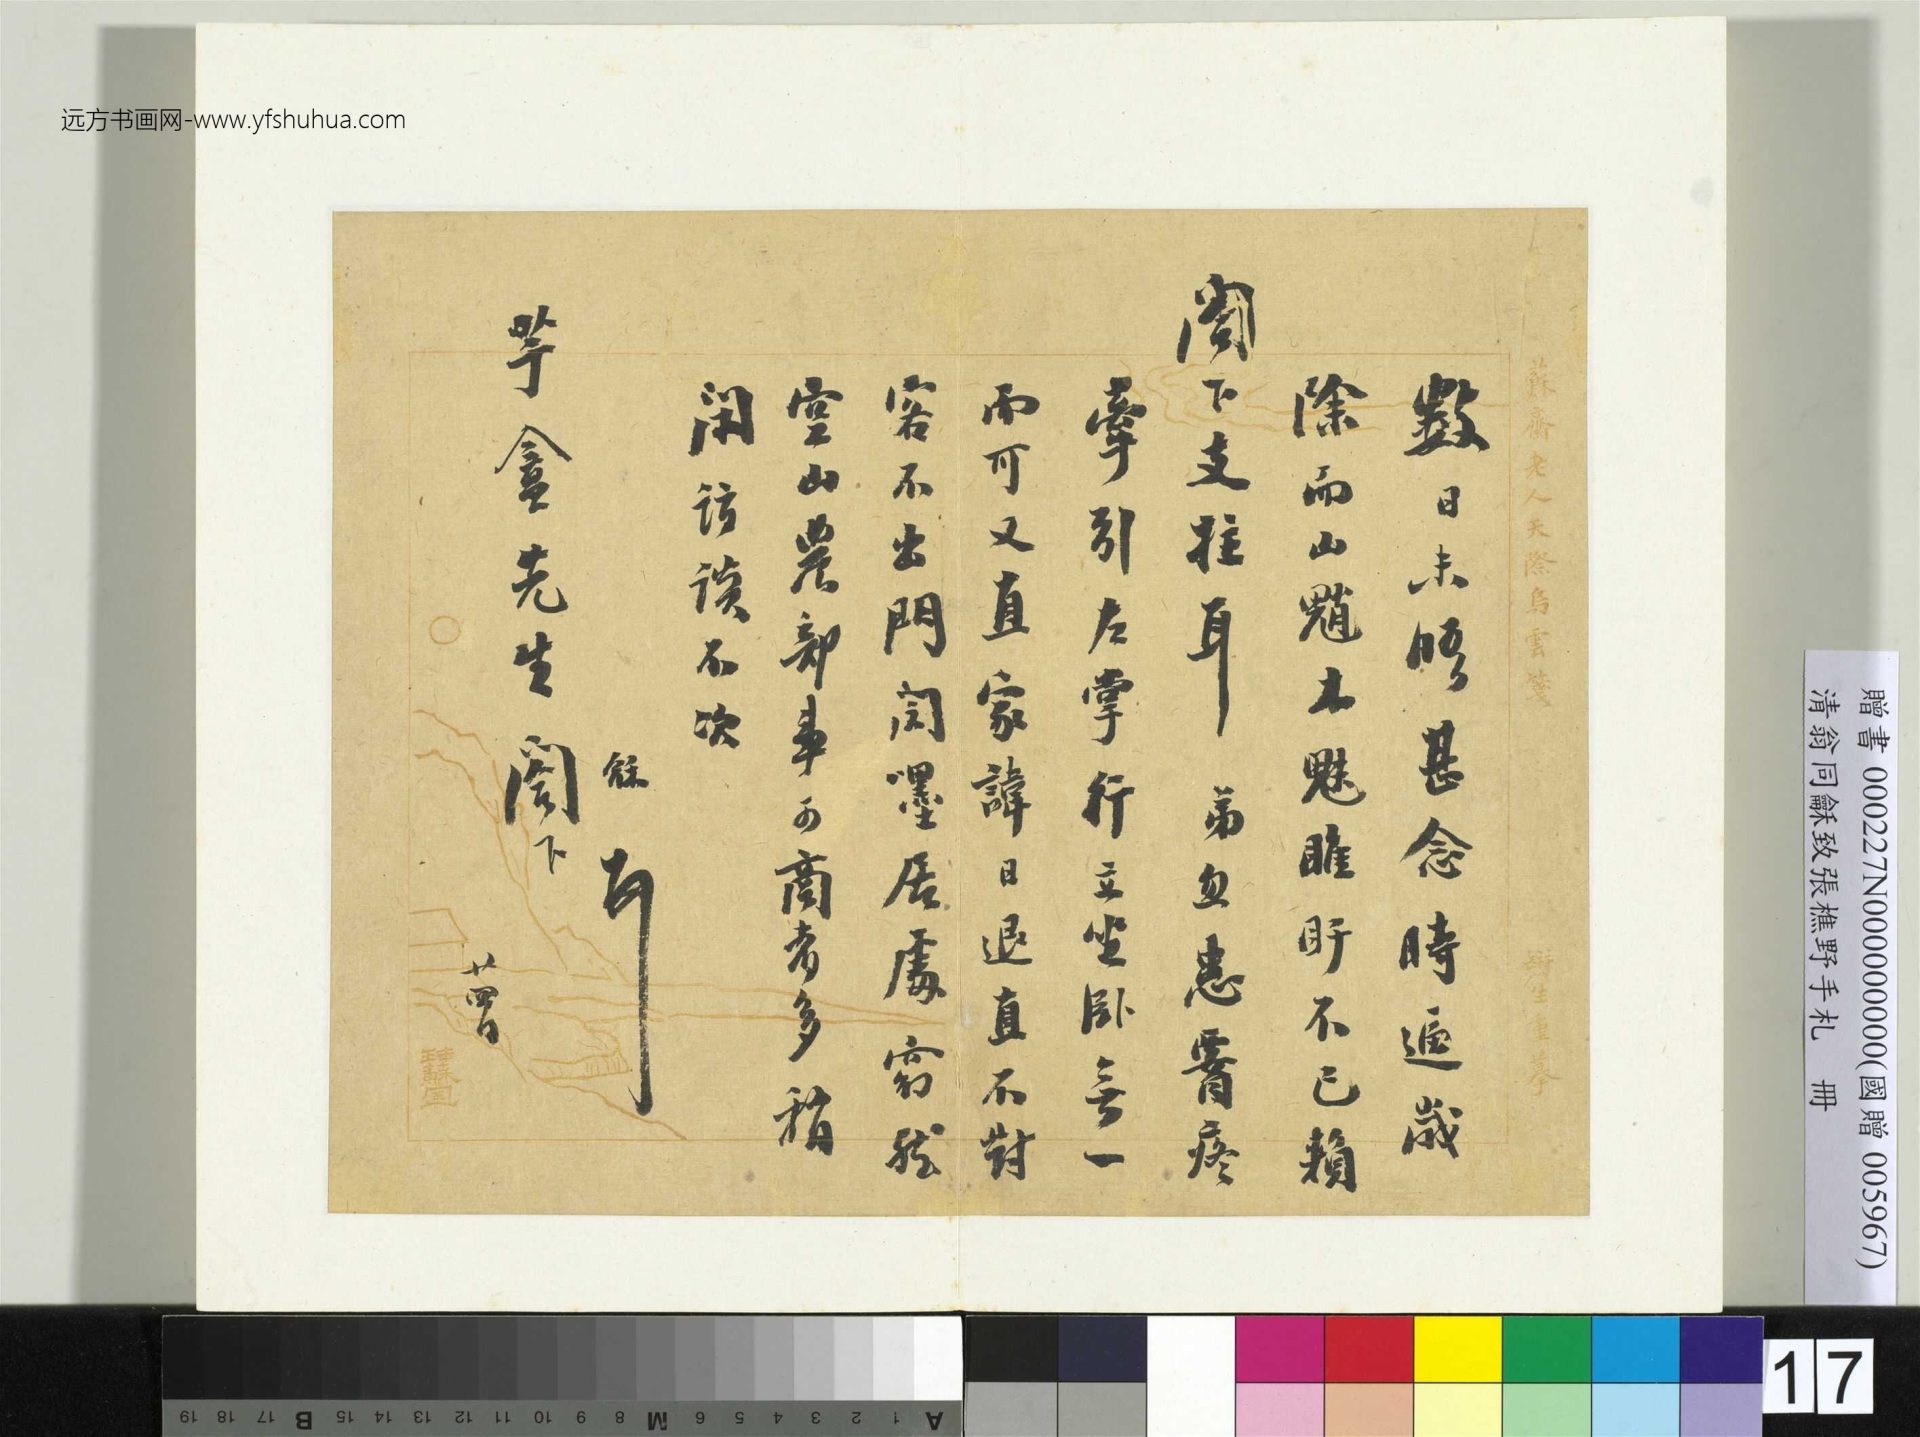 远方书画网-www.yfshuhua.com
蘇齋老人天際烏雲箋
數日未晤甚念時逼歲
除而山魈木魅睢盱不已賴
閣下支拄耳弟忽患脊疼
牽引左掌行立坐臥無一
而可又直家諱日退直不對
客不出門閔嘿居處窮愁
空山農部事可商者多稍
閑訪談不次
龢頓
芋盦先生閣下
廿四日
贈書 000227N000000000(國贈 005967)
清翁同龢致張樵野手札 冊
A 1 2 3 4 5 6 M 8 9 10 11 12 13 14 15 B 17 18 19
17